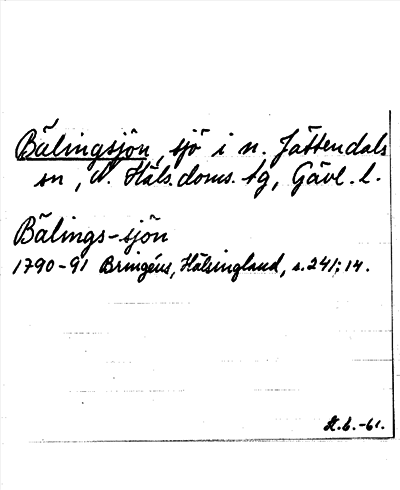 Bälingsjön, sjö i n. Jättendals
sn, N. Häls. doms. tg, Gävl. l.
Bälings-sjön
1790-91 Bringéus, Hälsingland, s. 241; 14.
St.b.-61.